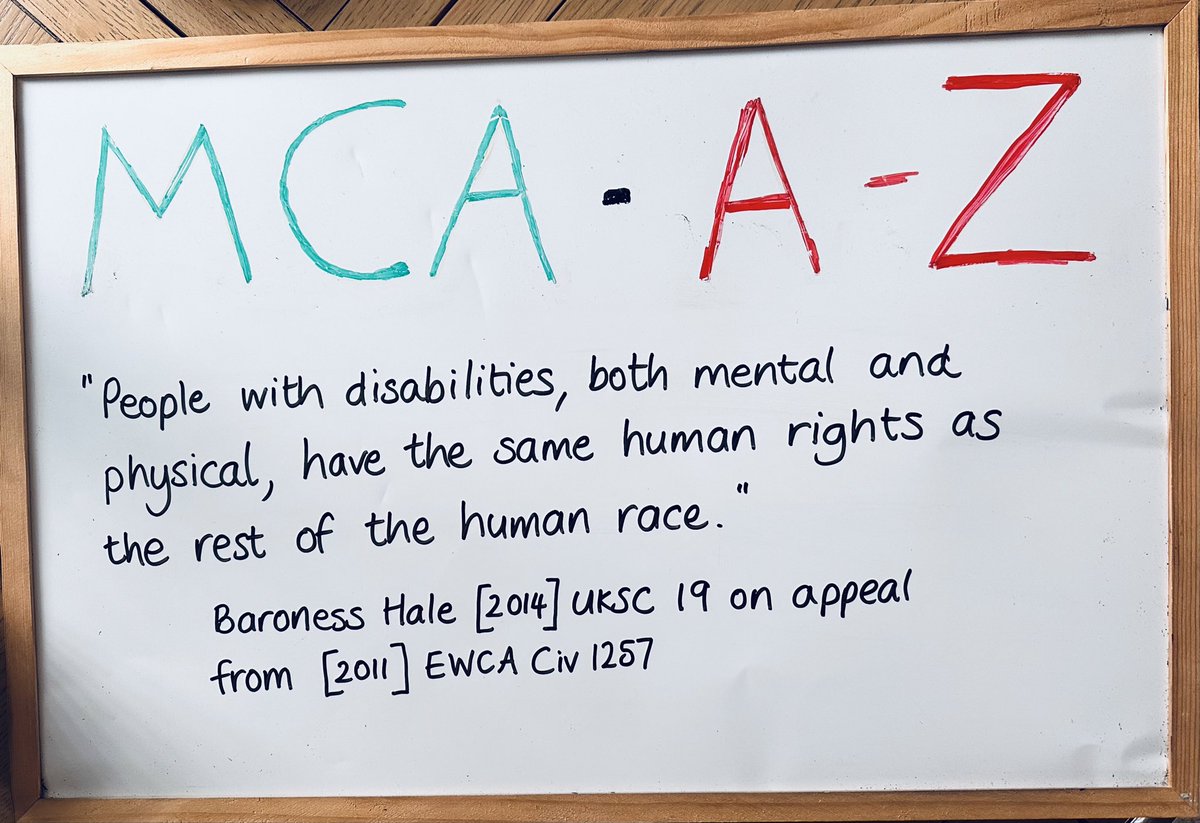 MCA - A - Z
"People with disabilities, both mental and
physical, have the same human rights as
the rest of the human race."
Baroness Hale [2014] UKSC 19 on appeal
from [2011] EWCA Civ 1257